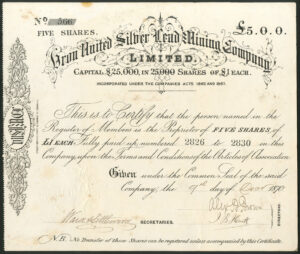 No 566
£5.0.0.
FIVE SHARES.
United Silver Lead Mining Company,
LIMITED.
CAPITAL £25,000, IN 25,000 SHARES OF £1 EACH.
INCORPORATED UNDER THE COMPANIES ACTS 1862 AND 1867.
This is to Certify that the person named in the
Register of Members is the Proprietor of FIVE SHARES of
£1 EACH Fully paid up numbered 2826 to 2830 in this
Company upon the Terms and Conditions of the Articles of Association
Given under the Common Seal of the said
Company, the 9th day of 1870
SECRETARIES.
N.B. No Transfer of these Shares can be registered unless accompanied by this Certificate.